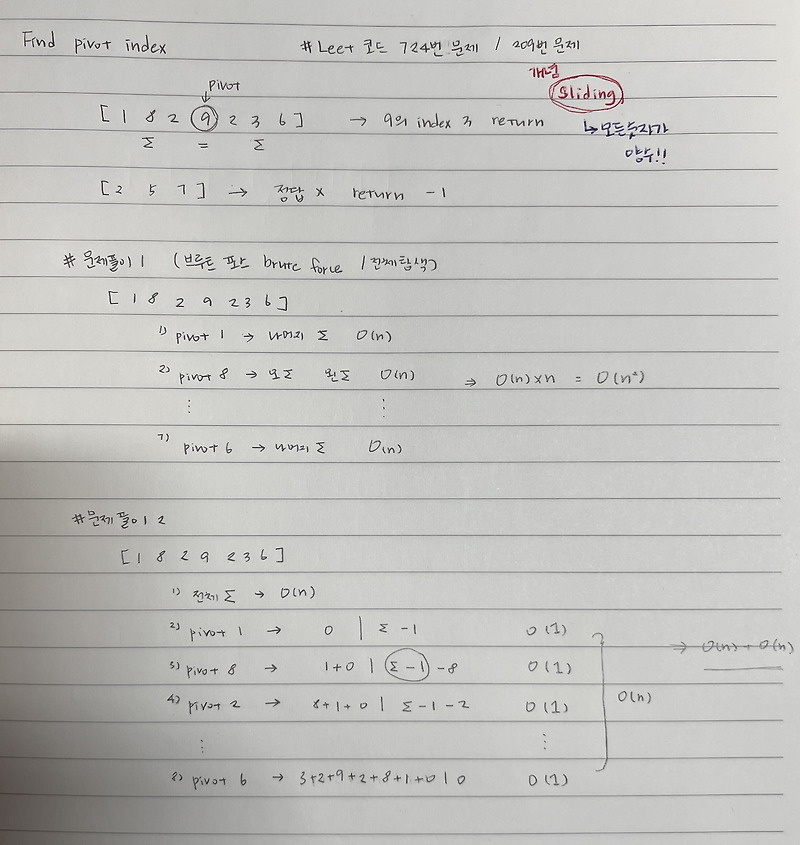 Find pivot index   # Leet 코드 724번 문제 / 209번 문제
개념
Sliding
↳ 모든 숫자가
양수!!
pivot
[ 1 8 2 9 2 3 6 ] → 9의 index 3 return
Σ = Σ
[ 2 5 7 ] → 정답 x return -1
# 문제풀이 1 (브루트 포스 brute force / 전체탐색)
[ 1 8 2 9 2 3 6 ]
1) pivot 1 → 나머지 Σ O(n)
2) pivot 8 → 오Σ 왼Σ O(n) ⇒ O(n)×n = O(n²)
⋮ ⋮
7) pivot 6 → 나머지 Σ O(n)
# 문제 풀이 2
[ 1 8 2 9 2 3 6 ]
1) 전체 Σ → O(n)
2) pivot 1 → 0 | Σ -1 O(1)
⇒ O(n) + O(n)
3) pivot 8 → 1+0 | Σ-1 -8 O(1)
O(n)
4) pivot 2 → 8+1+0 | Σ-1-2 O(1)
⋮ ⋮
8) pivot 6 → 3+2+9+2+8+1+0 | 0 O(1)